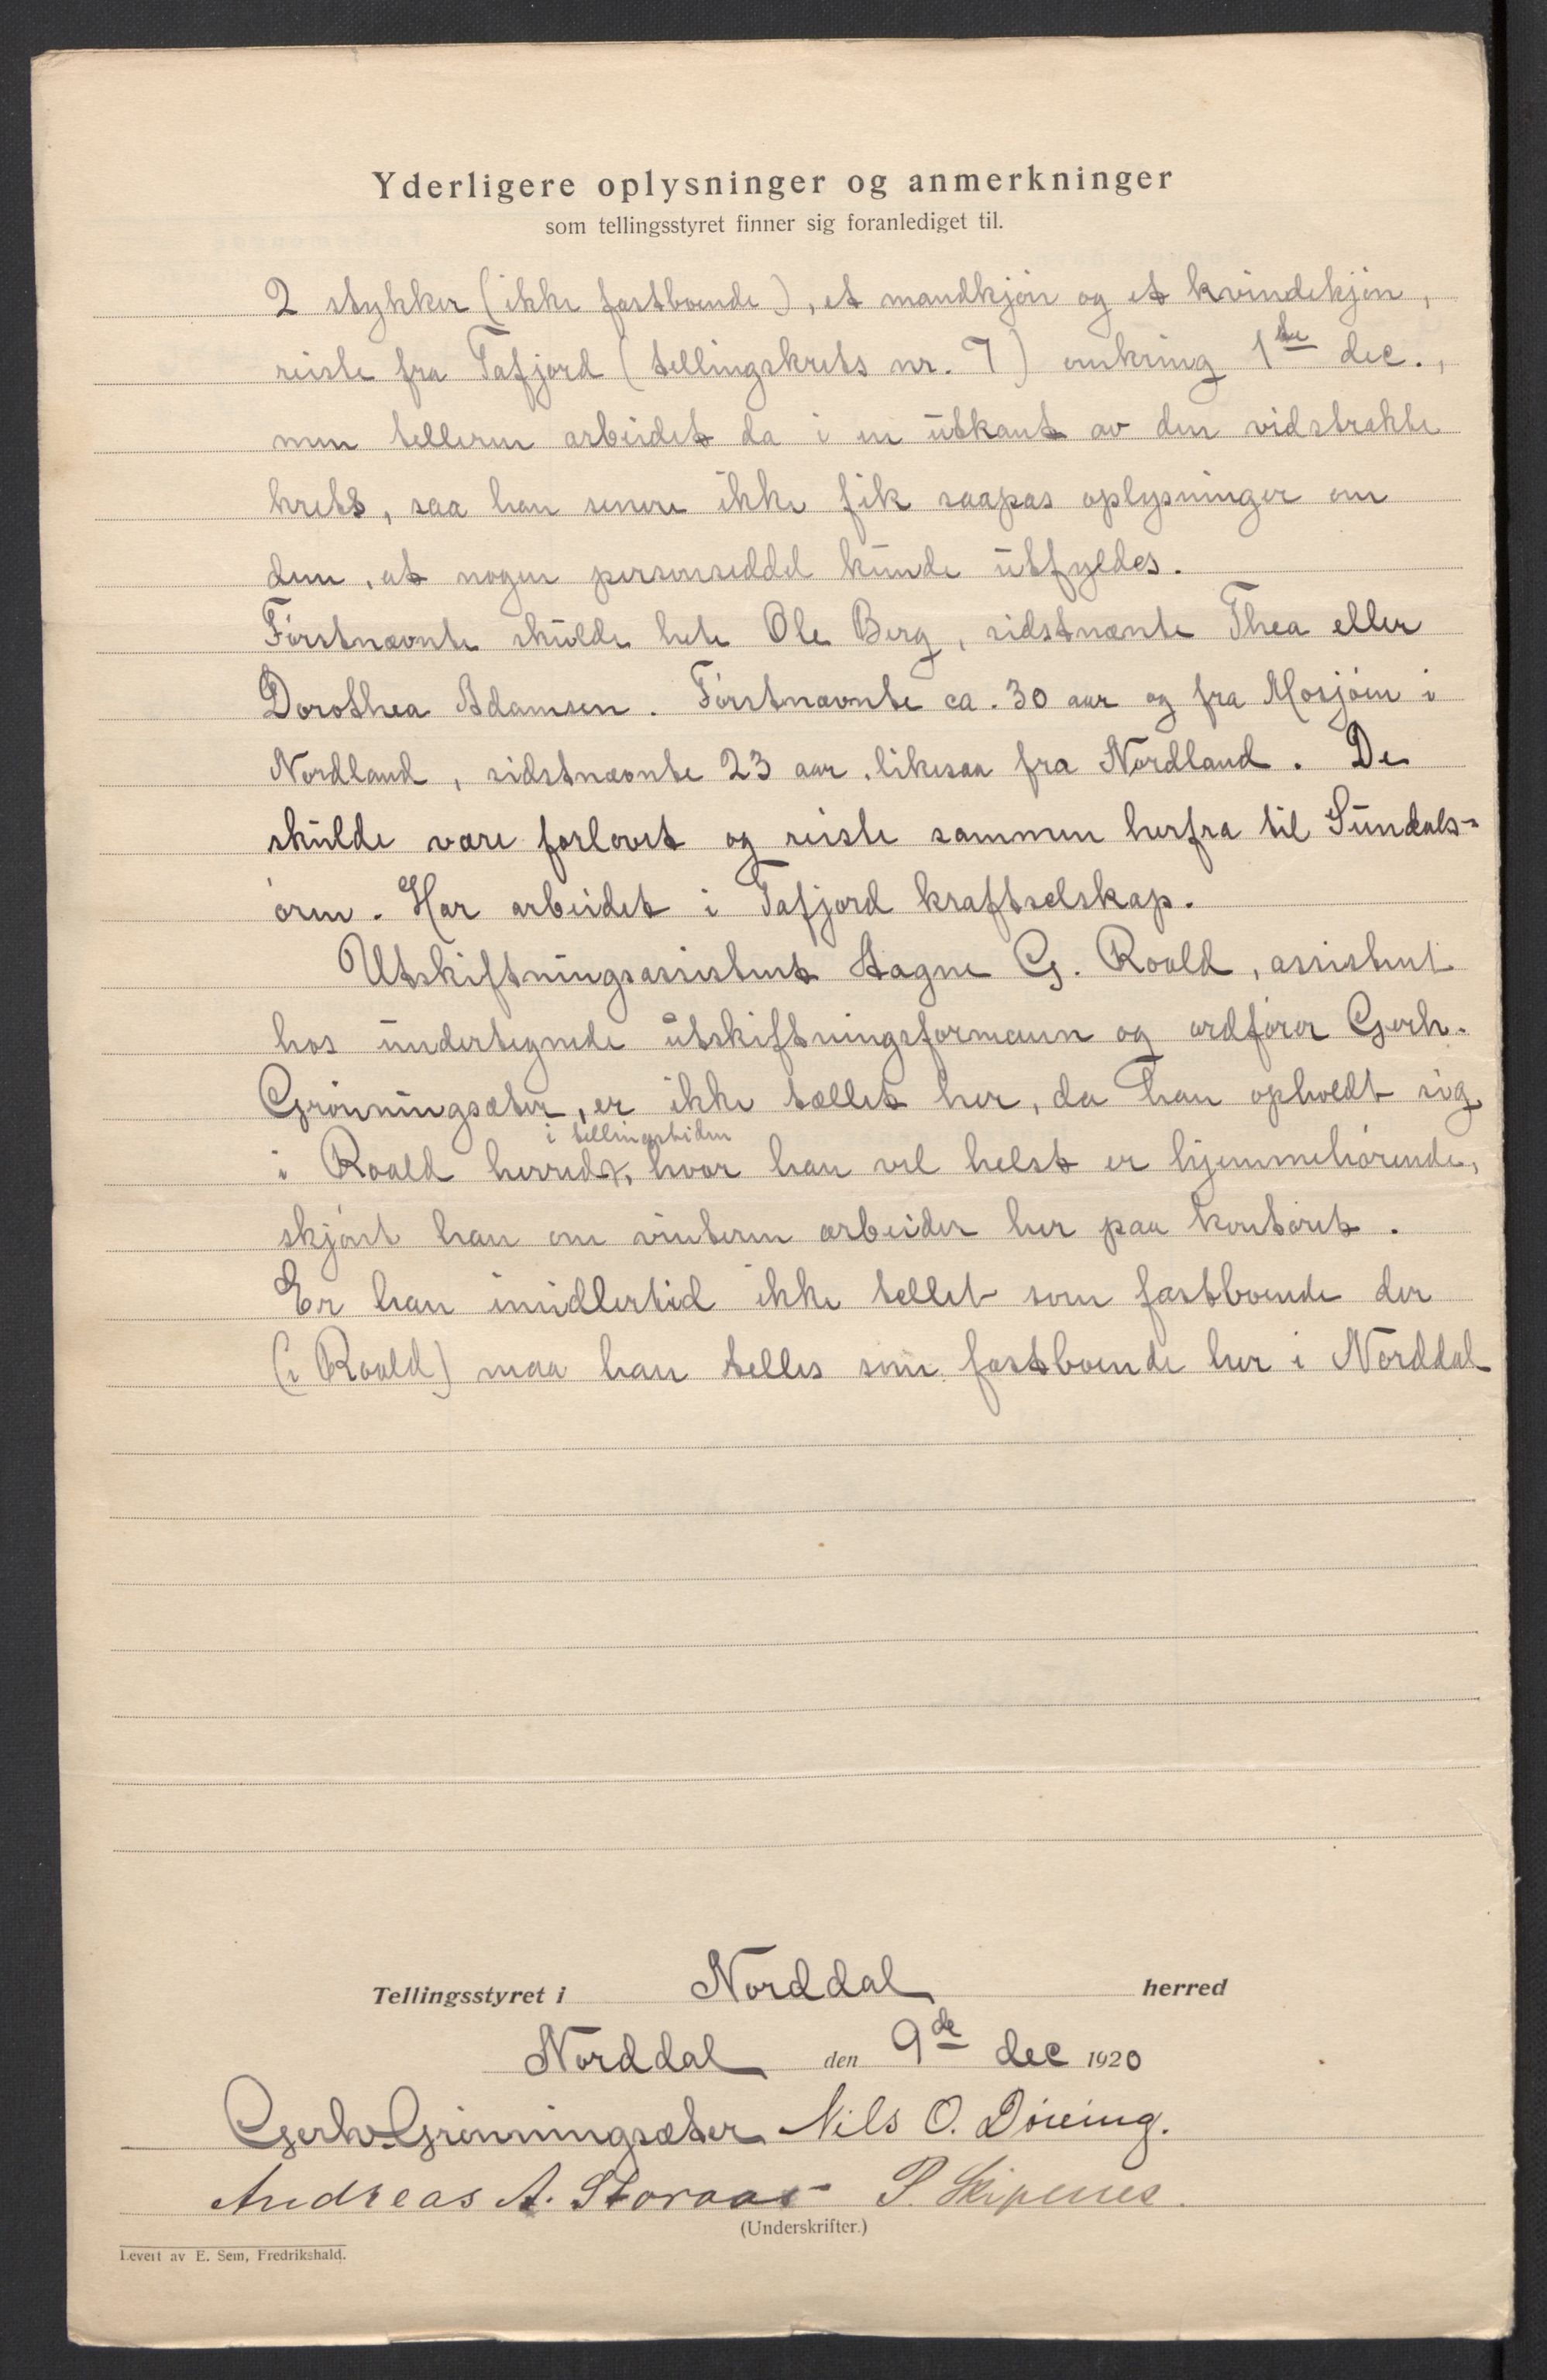 Yderligere oplysninger og anmerkninger
som tellingsstyret finner sig foranlediget til.
2 stykker (ikke fastboende), et mandkjøn og et kvindekjøn,
reiste fra Tafjord (tellingskrets nr. 7) omkring 1ste dec.,
men telleren arbeidet da i en utkant av den vidstrakte
krets, saa han senere ikke fik saapas oplysninger om
dem, at nogen personseddel kunde utfyldes.
Førstnævnte skulde hete Ole Berg, sidstnænte Thea eller
Dorothea Adamsen. Førstnævnte ca. 30 aar og fra Mosjøen i
Nordland, sidstnævnte 23 aar, likesaa fra Nordland. De
skulde være forlovet og reiste sammen herfra til Sundals-
øren. Har arbeidet i Tafjord kraftselskap.
Utskiftningsassistent Aagne G. Roald, assistent
hos undertegnede utskiftningsformann og ordfører Gerh.
Grønningsæter, er ikke tællet her, da han opholdt sig
i tellingstiden
i Roald herred, hvor han vel helst er hjemmehørende,
skjønt han om vinteren arbeider her paa kontoret.
Er han imidlertid ikke tellet som fastboende der
(i Roald) maa han telles som fastboende her i Norddal
Tellingsstyret i Norddal herred
Norddal den 9de dec 1920
Gerh. Grønningsæter Nils O. Døving.
Andreas A. Storaas P. Skipenes.
(Underskrifter.)
Levert av E. Sem, Fredrikshald.